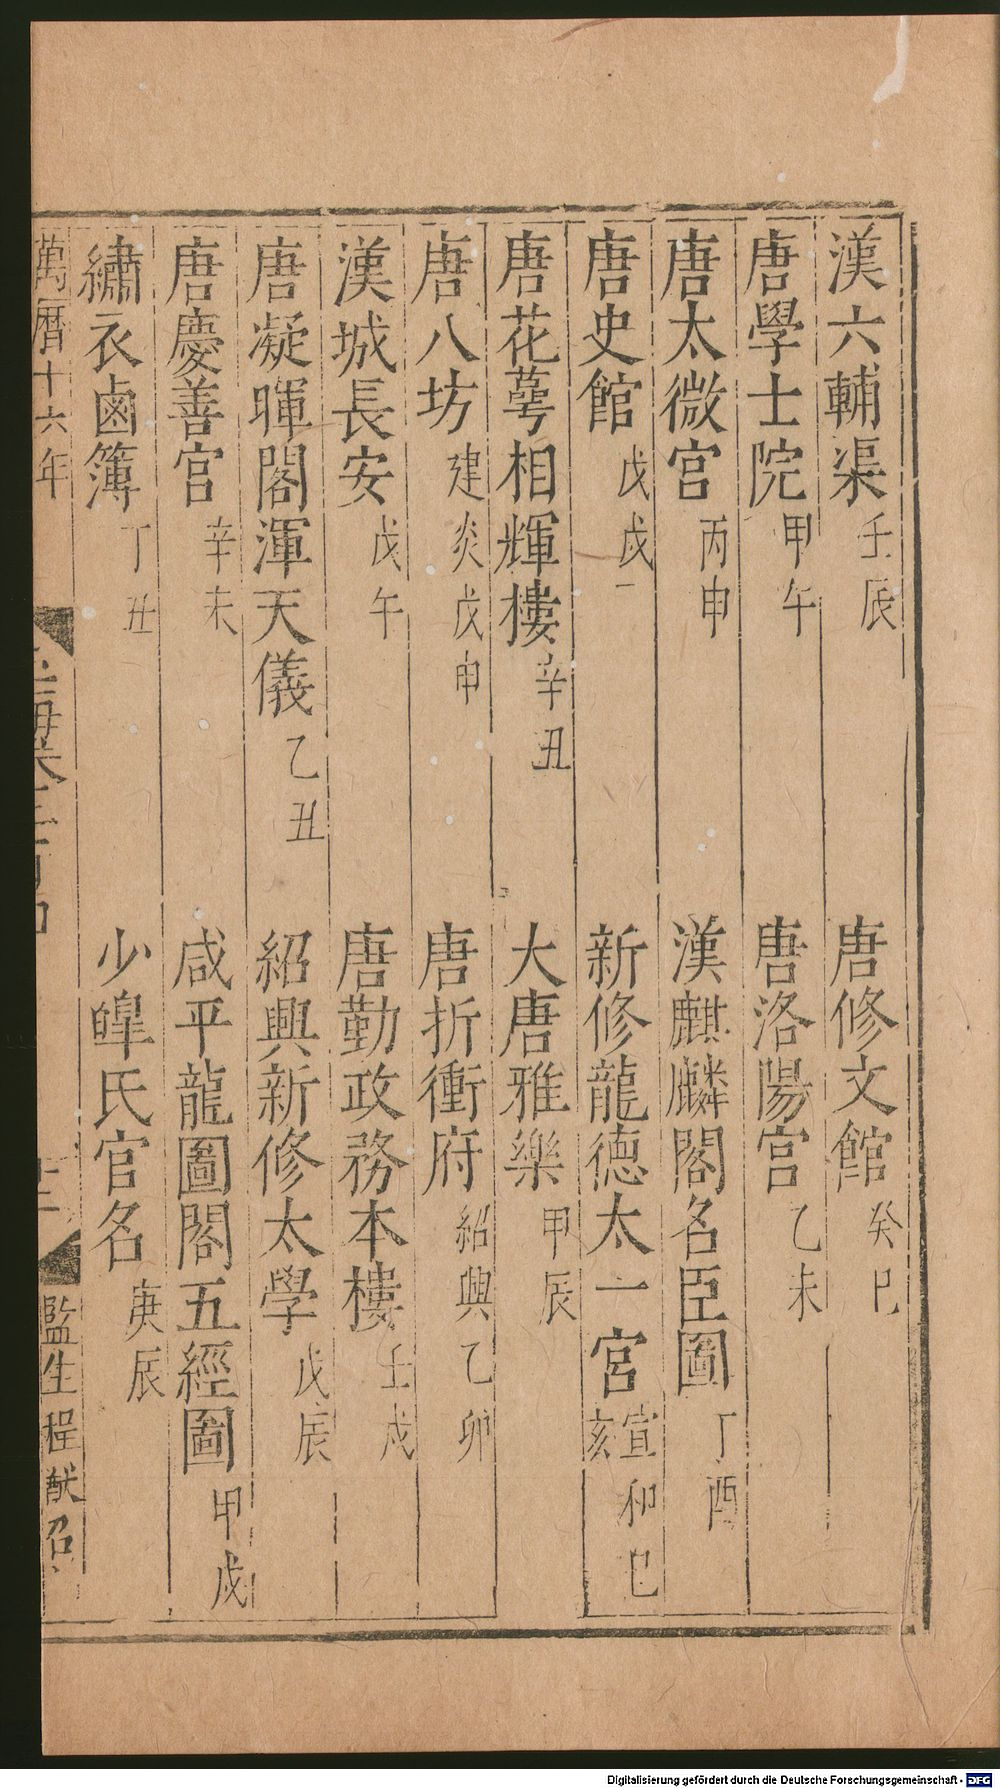 漢六輔渠壬辰 唐修文館癸巳
唐學士院甲午 唐洛陽宮乙未
唐太微宮丙申 漢麒麟閣名臣圖丁酉
唐史館戊戌 新修龍德太一宮宣和己亥
唐花萼相輝樓辛丑 大唐雅樂甲辰
唐八坊建炎戊申 唐折衝府紹興乙卯
漢城長安戊午 唐勤政務本樓壬戌
唐凝暉閣渾天儀乙丑 紹興新修太學戊辰
唐慶善宮辛未 咸平龍圖閣五經圖甲戌
繡衣鹵簿丁丑 少皡氏官名庚辰
萬曆十六年 玉海卷二百四 十二 監生程猷召
Digitalisierung gefördert durch die Deutsche Forschungsgemeinschaft - DFG